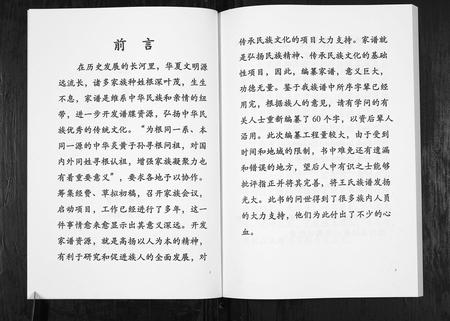 前言
在历史发展的长河里，华夏文明源
远流长，诸多家族种姓根深叶茂，生生
不息，家谱是维系中华民族和亲情的纽
带，进一步开发谱牒资源，弘扬中华民
族优秀的传统文化。“为根同一系、本
同一源的中华炎黄子孙寻根同祖，对国
内外同姓寻根认祖，增强家族凝聚力也
有着重要意义”，要求各地予以协作。
筹集经费、草拟初稿，召开家族会议，
启动项目，工作已经进行了多年，这一
件事情愈来愈显示出其意义深远。开发
家谱资源，就是高扬以人为本的精神，
有利于研究和促进族人的全面发展，对
传承民族文化的项目大力支持。家谱就
是弘扬民族精神、传承民族文化的基础
性项目，因此，编纂家谱，意义巨大，
功德无量。鉴于我族谱中所序字辈已经
用完，根据族人的意见，请有学问的有
关人士重新编纂了60个字，以资后辈人
沿用。此次编纂工程量较大，由于受到
时间和地域的限制，书中难免还有遗漏
和错误的地方，望后人中有识之士能够
批评指正并将其完善，将王氏族谱发扬
光大。此书的问世得到了很多族内人员
的大力支持，他们为此付出了不少的心
血。